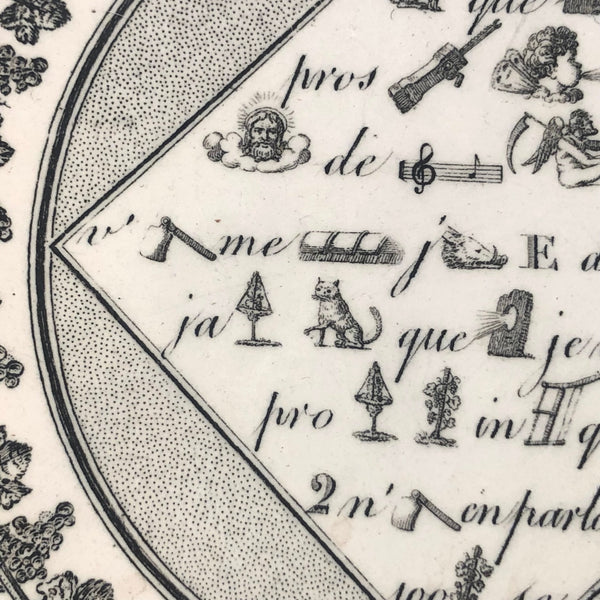 que
pros
de
v' me j' E a
ja que je
pro in q
2 n' en parla
100 se